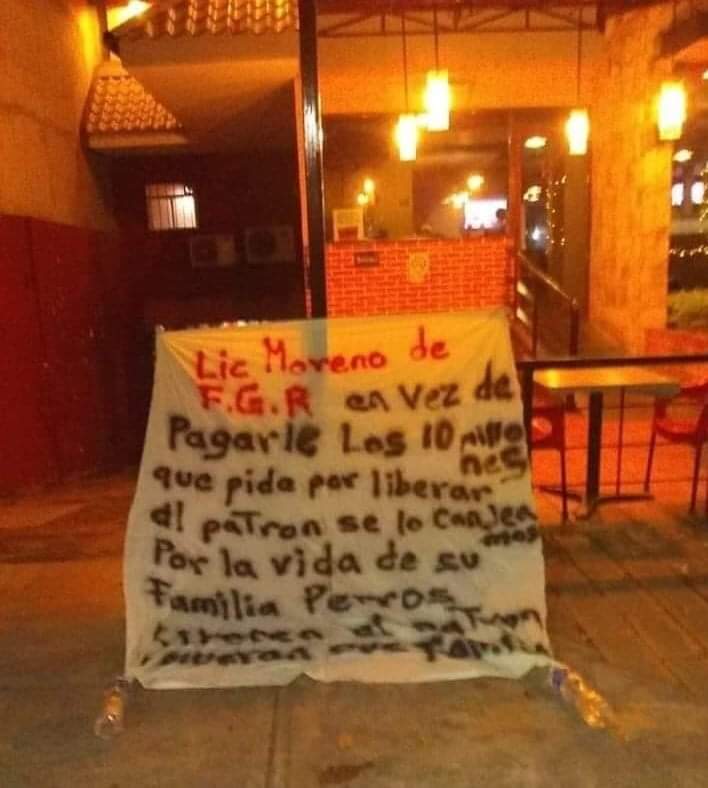 Lic Moreno de
F.G.R en vez de
Pagarle Los 10 millo
nes
que pide por liberar
al patron se lo canjea
mos
Por la vida de su
Familia Perros
Liberen al patron
o mueran
familia